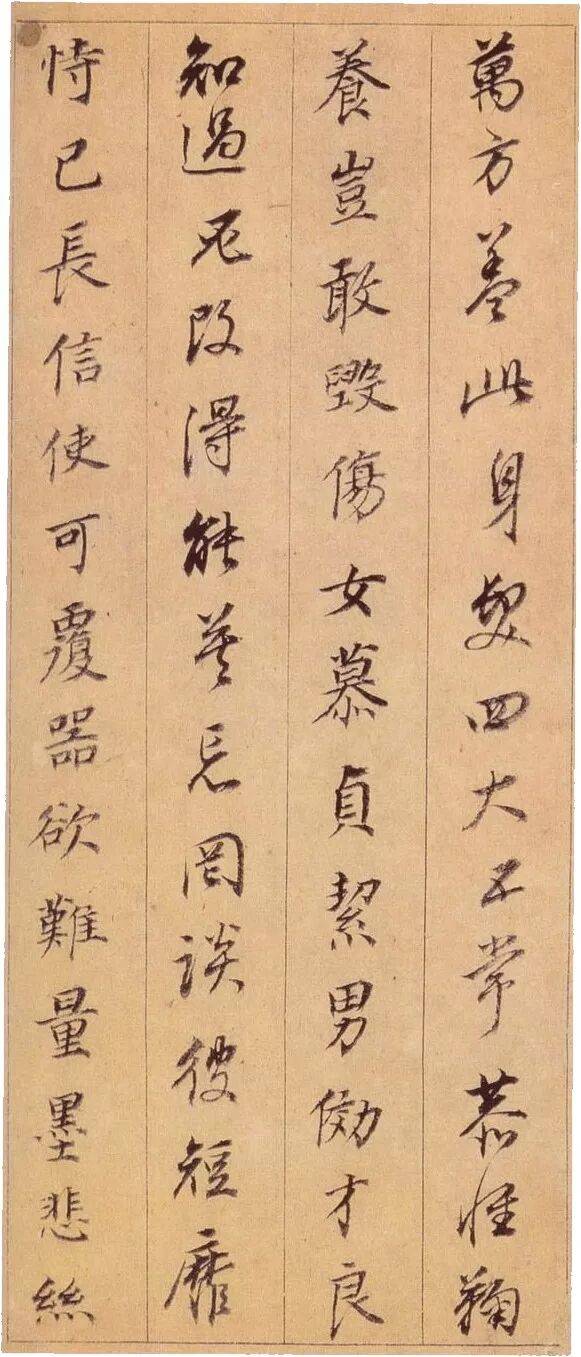 萬方蓋此身髮四大五常恭惟鞠
養豈敢毀傷女慕貞絜男効才良
知過必改得能莫忘罔談彼短靡
恃己長信使可覆器欲難量墨悲絲